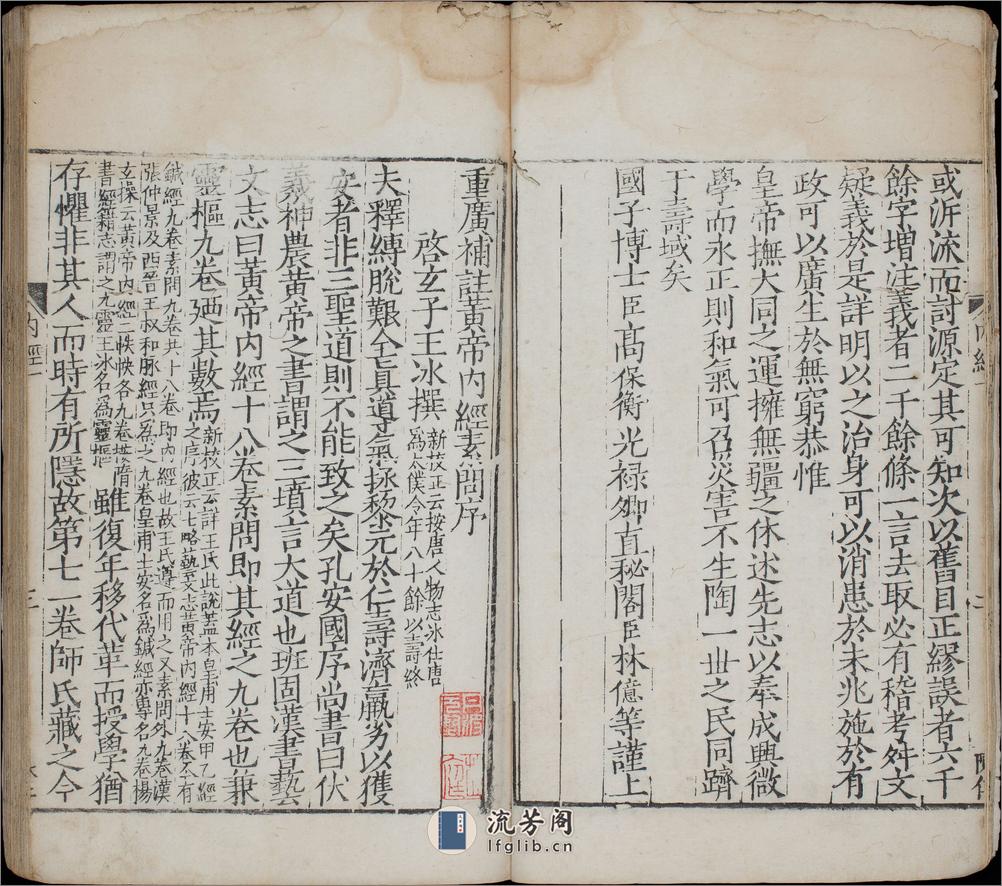 或泝流而討源定其可知次以舊目正繆誤者六千
餘字增注義者二千餘條一言去取必有稽考舛文
疑義於是詳明以之治身可以消患於未兆施於有
政可以廣生於無窮恭惟
皇帝撫大同之運擁無疆之休述先志以奉成興微
學而永正則和氣可召災害不生陶一世之民同躋
于壽域矣
國子博士臣高保衡光禄卿直秘閣臣林億等謹上
重廣補註黃帝內經素問序
啓玄子王冰撰新校正云按唐人物志冰仕唐
爲太僕令年八十餘以壽終
夫釋縛脫艱全真導氣拯黎元於仁壽濟羸劣以獲
安者非三聖道則不能致之矣孔安國序尚書曰伏
羲神農黃帝之書謂之三墳言大道也班固漢書藝
文志曰黃帝內經十八卷素問即其經之九卷也兼
靈樞九卷廼其數焉新校正云詳王氏此說蓋本皇甫士安甲乙經
之序彼云七略藝文志黃帝內經十八卷今有
鍼經九卷素問九卷共十八卷即內經也故王氏遵而用之又素問外九卷漢
張仲景及西晉王叔和脉經只爲之九卷皇甫士安名爲鍼經亦專名九卷楊
玄操云黃帝內經二帙帙各九卷按隋
書經籍志謂之九靈王冰名爲靈樞
雖復年移代革而授學猶
存懼非其人而時有所隱故第七一卷師氏藏之今
內經一
二
內經一
三
流芳阁
lfglib.cn